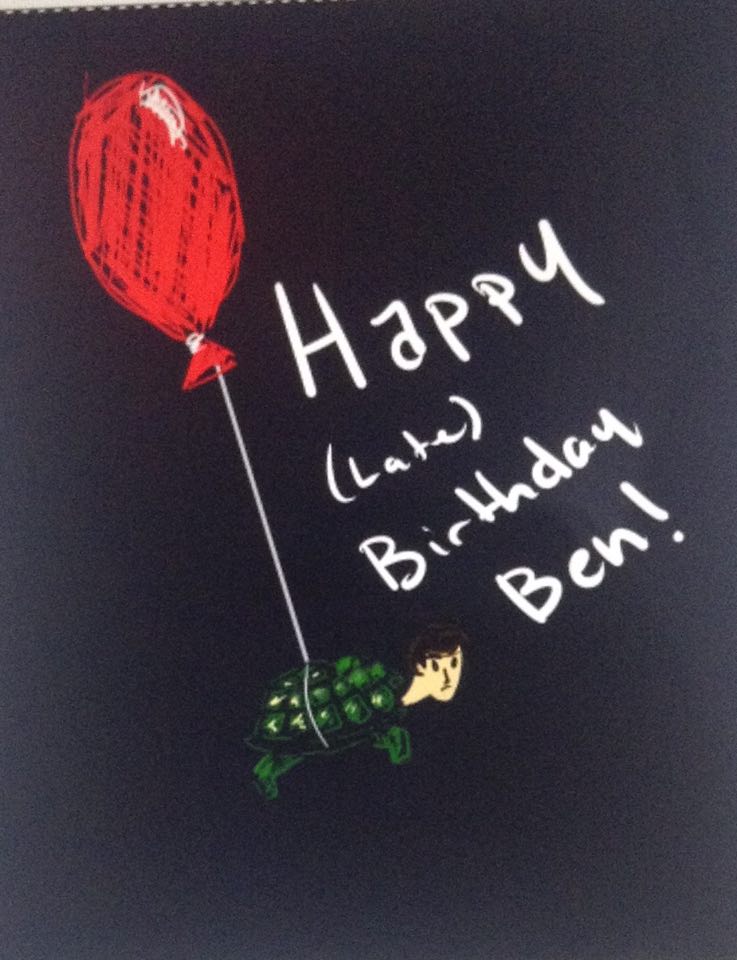 Happy
(Late)
Birthday
Ben!